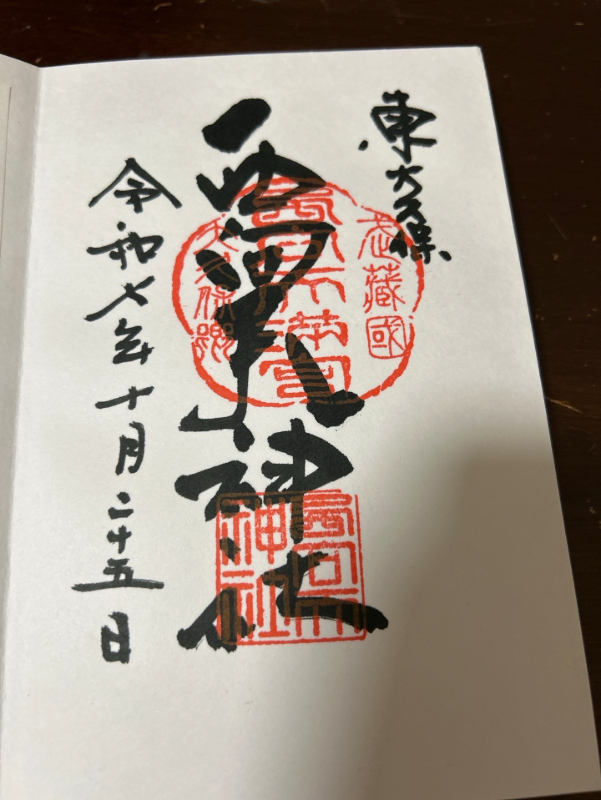 東大久保
西向天神社
令和七年十月二十五日
武藏國
大久保鄕
西向天
神社